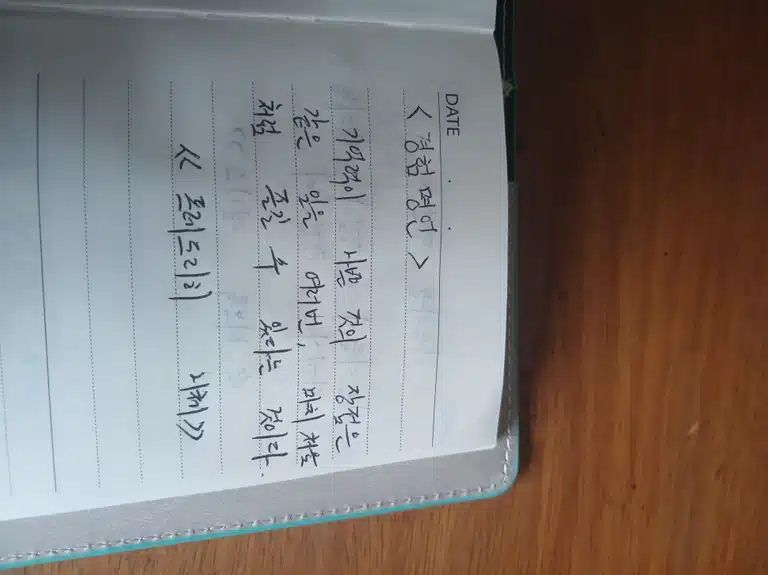 DATE . .
< 경험 명언 >
기억력이 나쁜 것의 장점은
같은 일을 여러번, 마치 처음
처럼 즐길 수 있다는 것이다.
《 프리드리히 니체 》